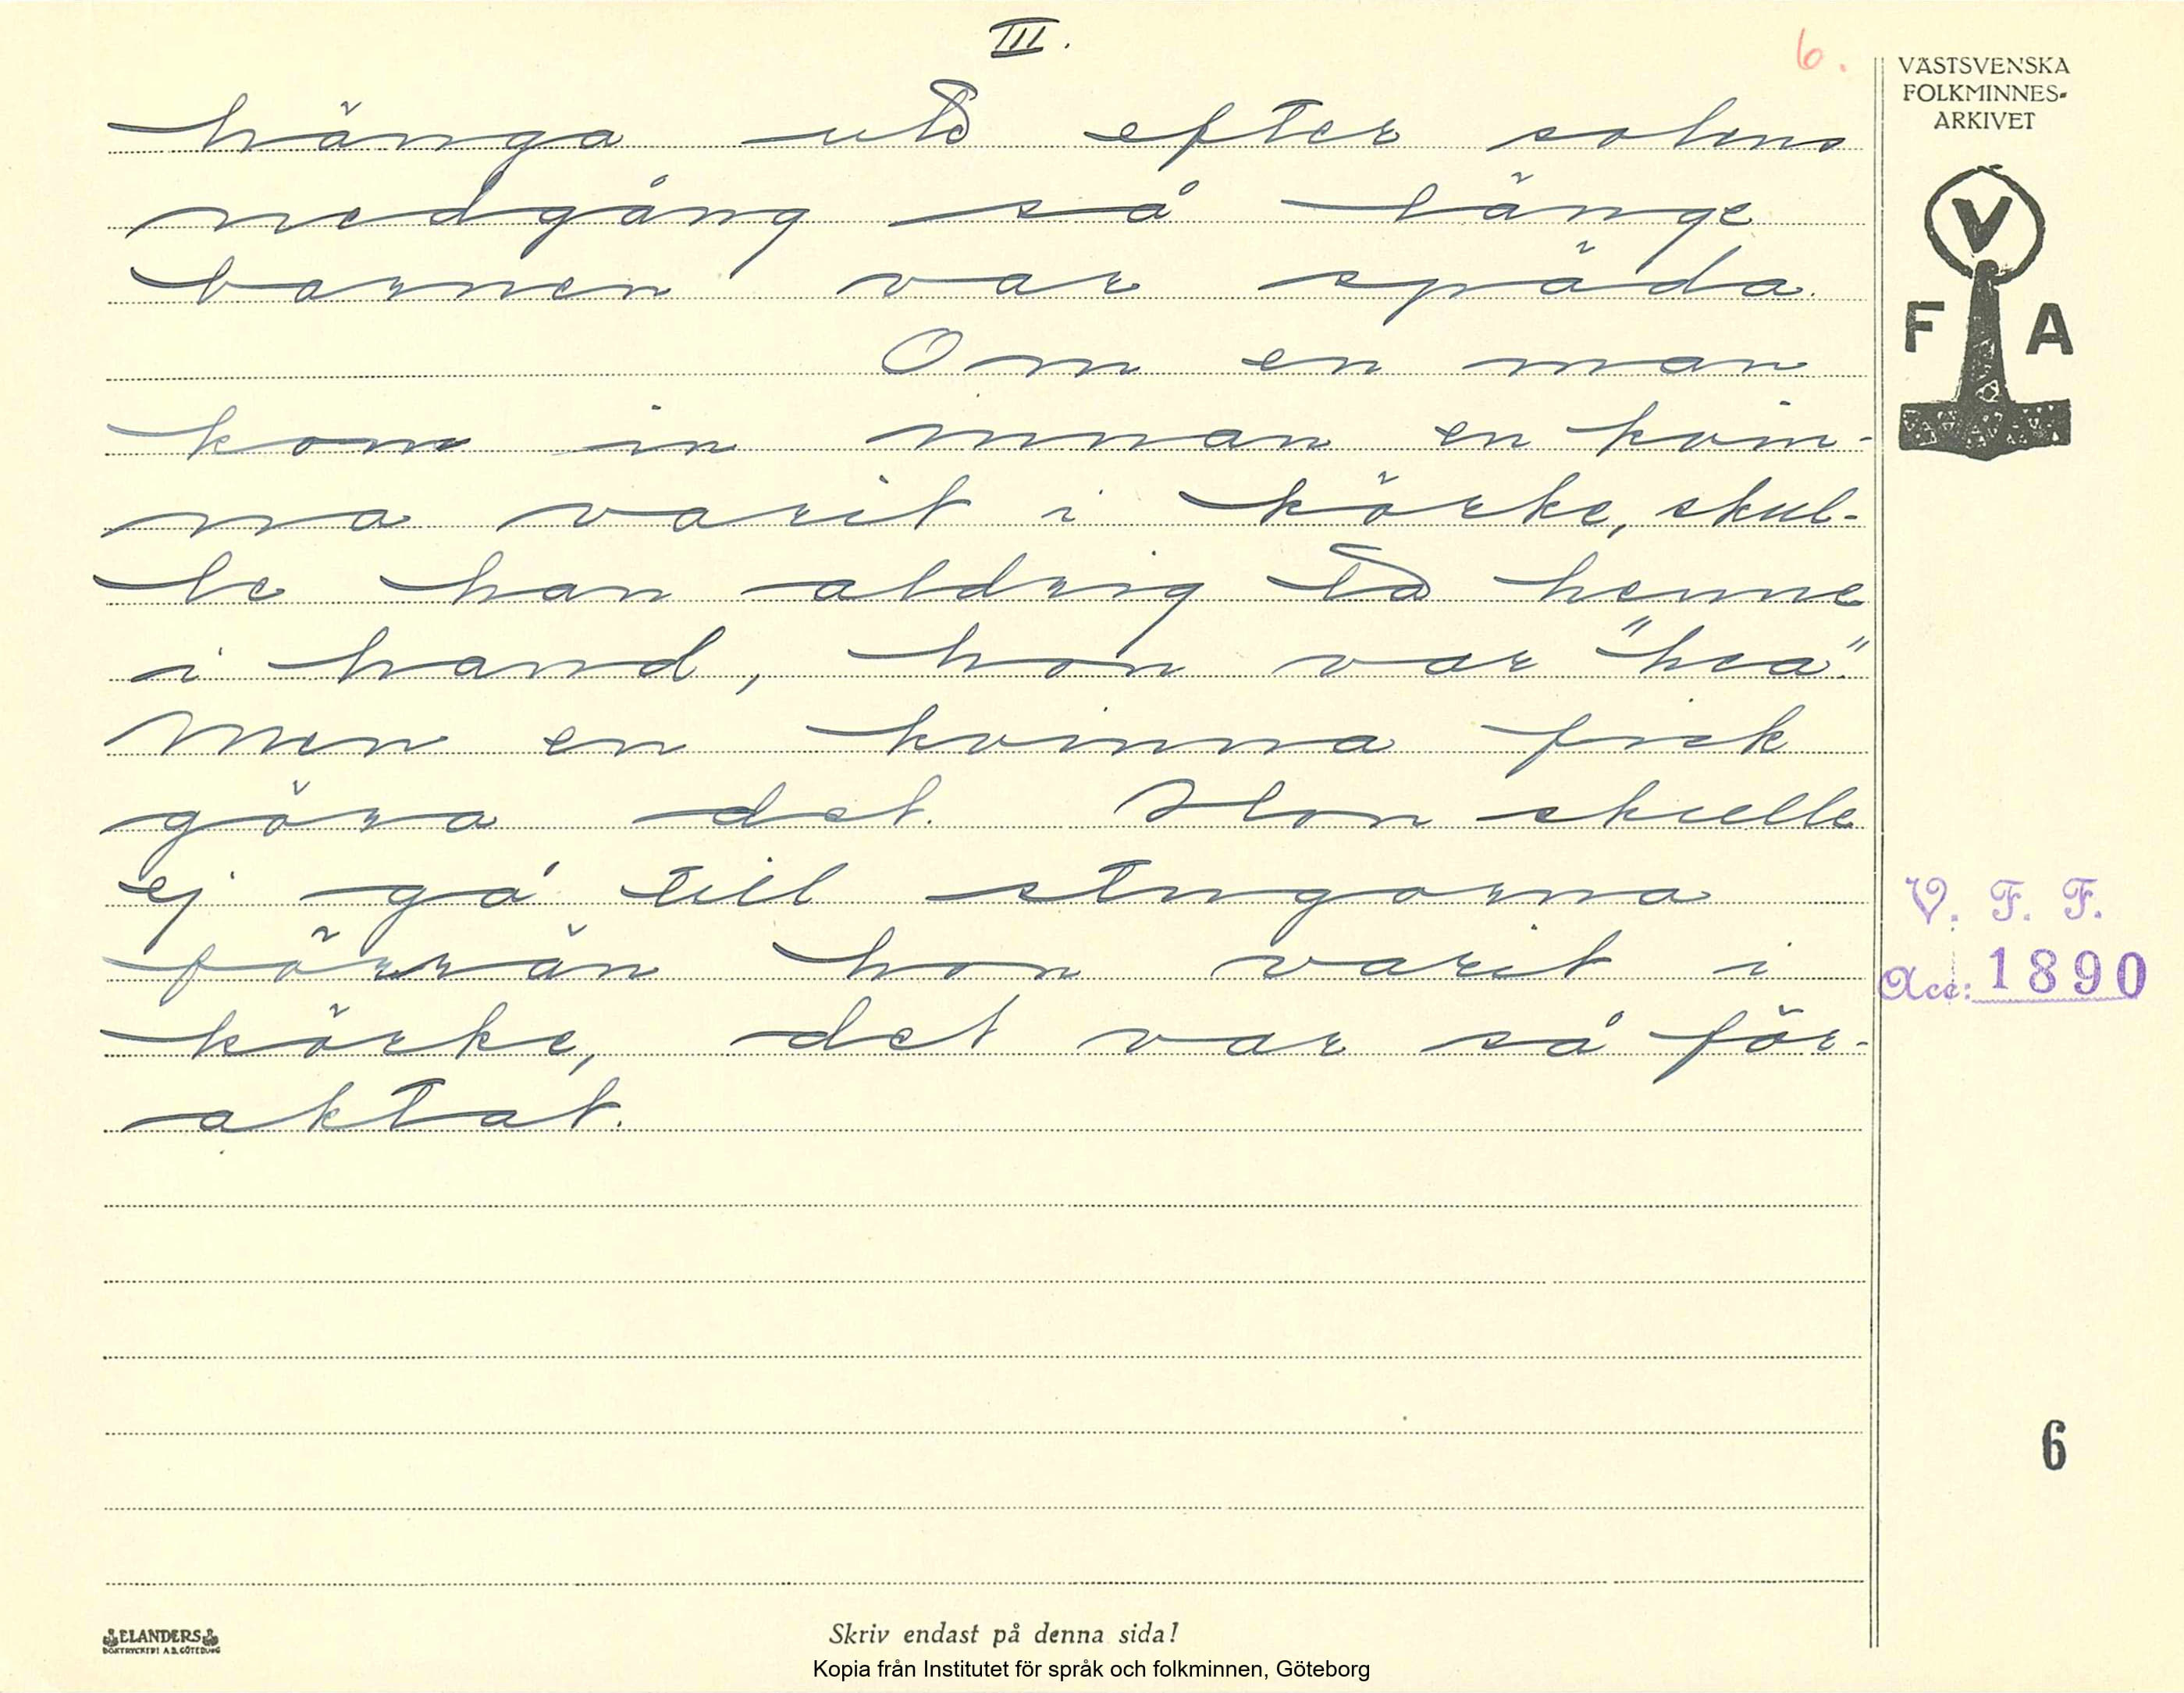 III.
6.
hänga ute efter solens
nedgång så länge
barnen var späda.
Om en man
kom in innan en kvin-
na varit i körke, skul-
le han aldrig ta henne
i hand, hon var "hea".
Men en kvinna fick
göra det. Hon skulle
ej gå till stugorna
förrän hon varit i
körke, det var så för-
aktat.
VÄSTSVENSKA
FOLKMINNES-
ARKIVET
V
F A
V. F. F.
Acc: 1890
6
ELANDERS
BOKTRYCKERI A.B. GÖTEBORG
Skriv endast på denna sida!
Kopia från Institutet för språk och folkminnen, Göteborg